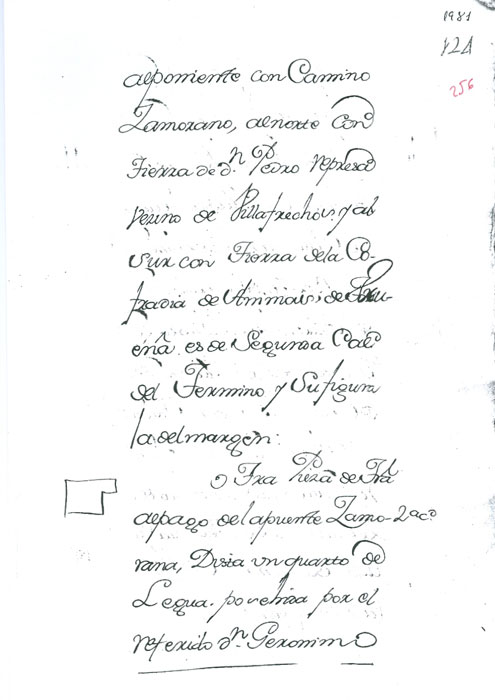 1981
121
256
alponiente con Camino
Zamorano, alnorte Con
Tierra de dn. Pedro represa
Vezino de Villafrechos, y al
Sur con Tierra dela Co-
fradia de Animas, de
ena es de Segunda Cali
del Termino y Sufigura
la del margen:
Otra Pieza de Tra
alpago delapuente Zamo- 2a co
rana, Dista un quarto de
Legua. posehisa por el
referido dn. Geronimo